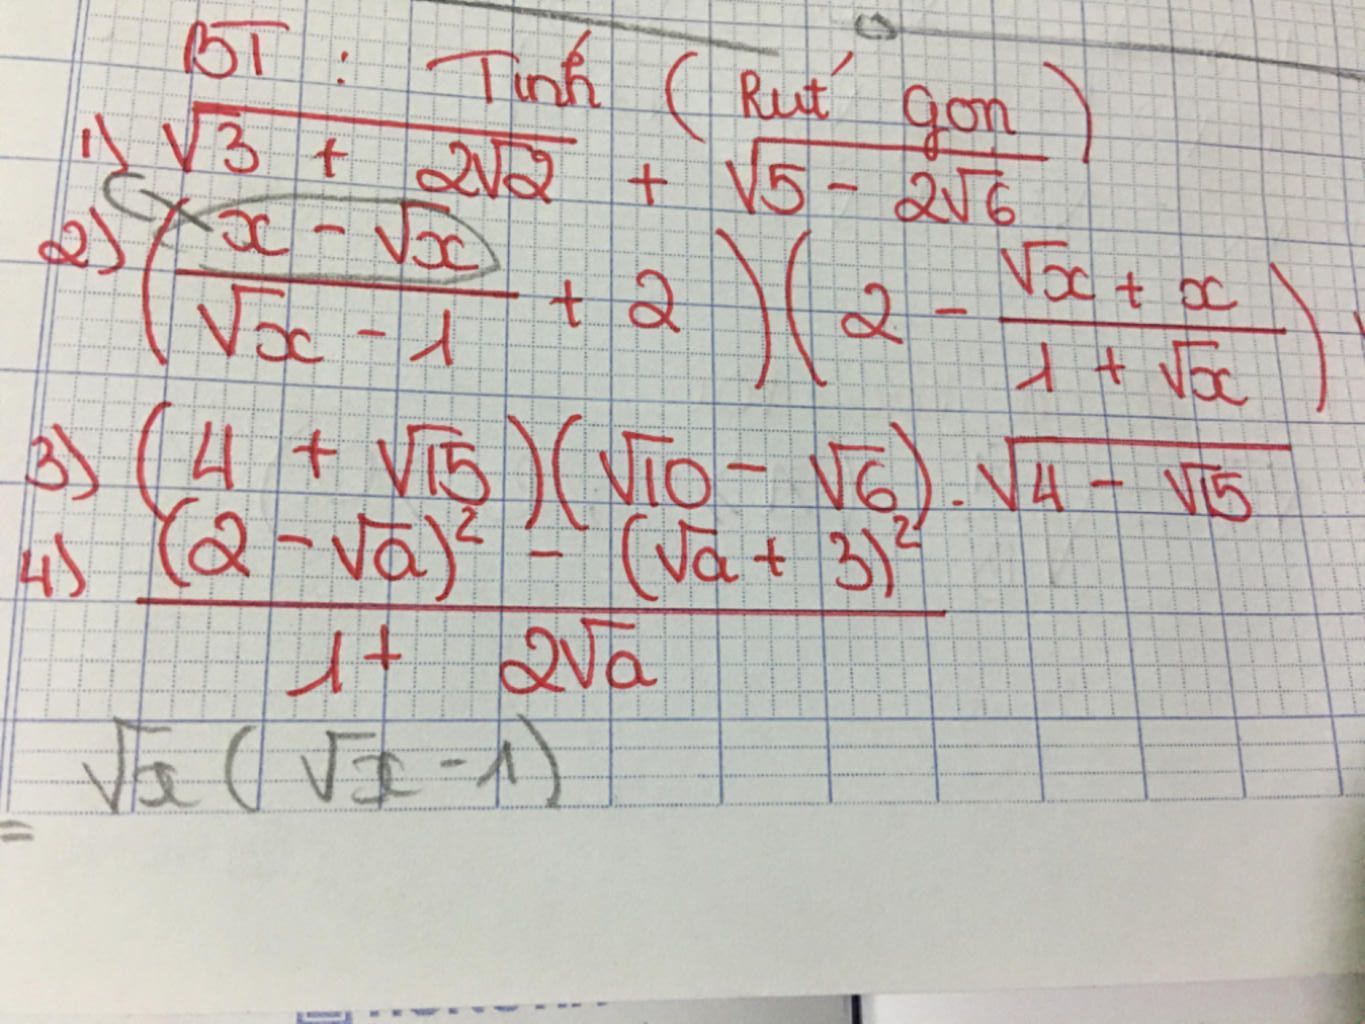 BT : Tính ( Rút gọn )
1) √(3 + 2√2) + √(5 - 2√6)
2) ( (x - √x)/(√x - 1) + 2 ) ( 2 - (√x + x)/(1 + √x) )
3) (4 + √15)(√10 - √6) . √(4 - √15)
4) ((2 - √a)² - (√a + 3)²)/(1 + 2√a)
√x ( √x - 1)
=